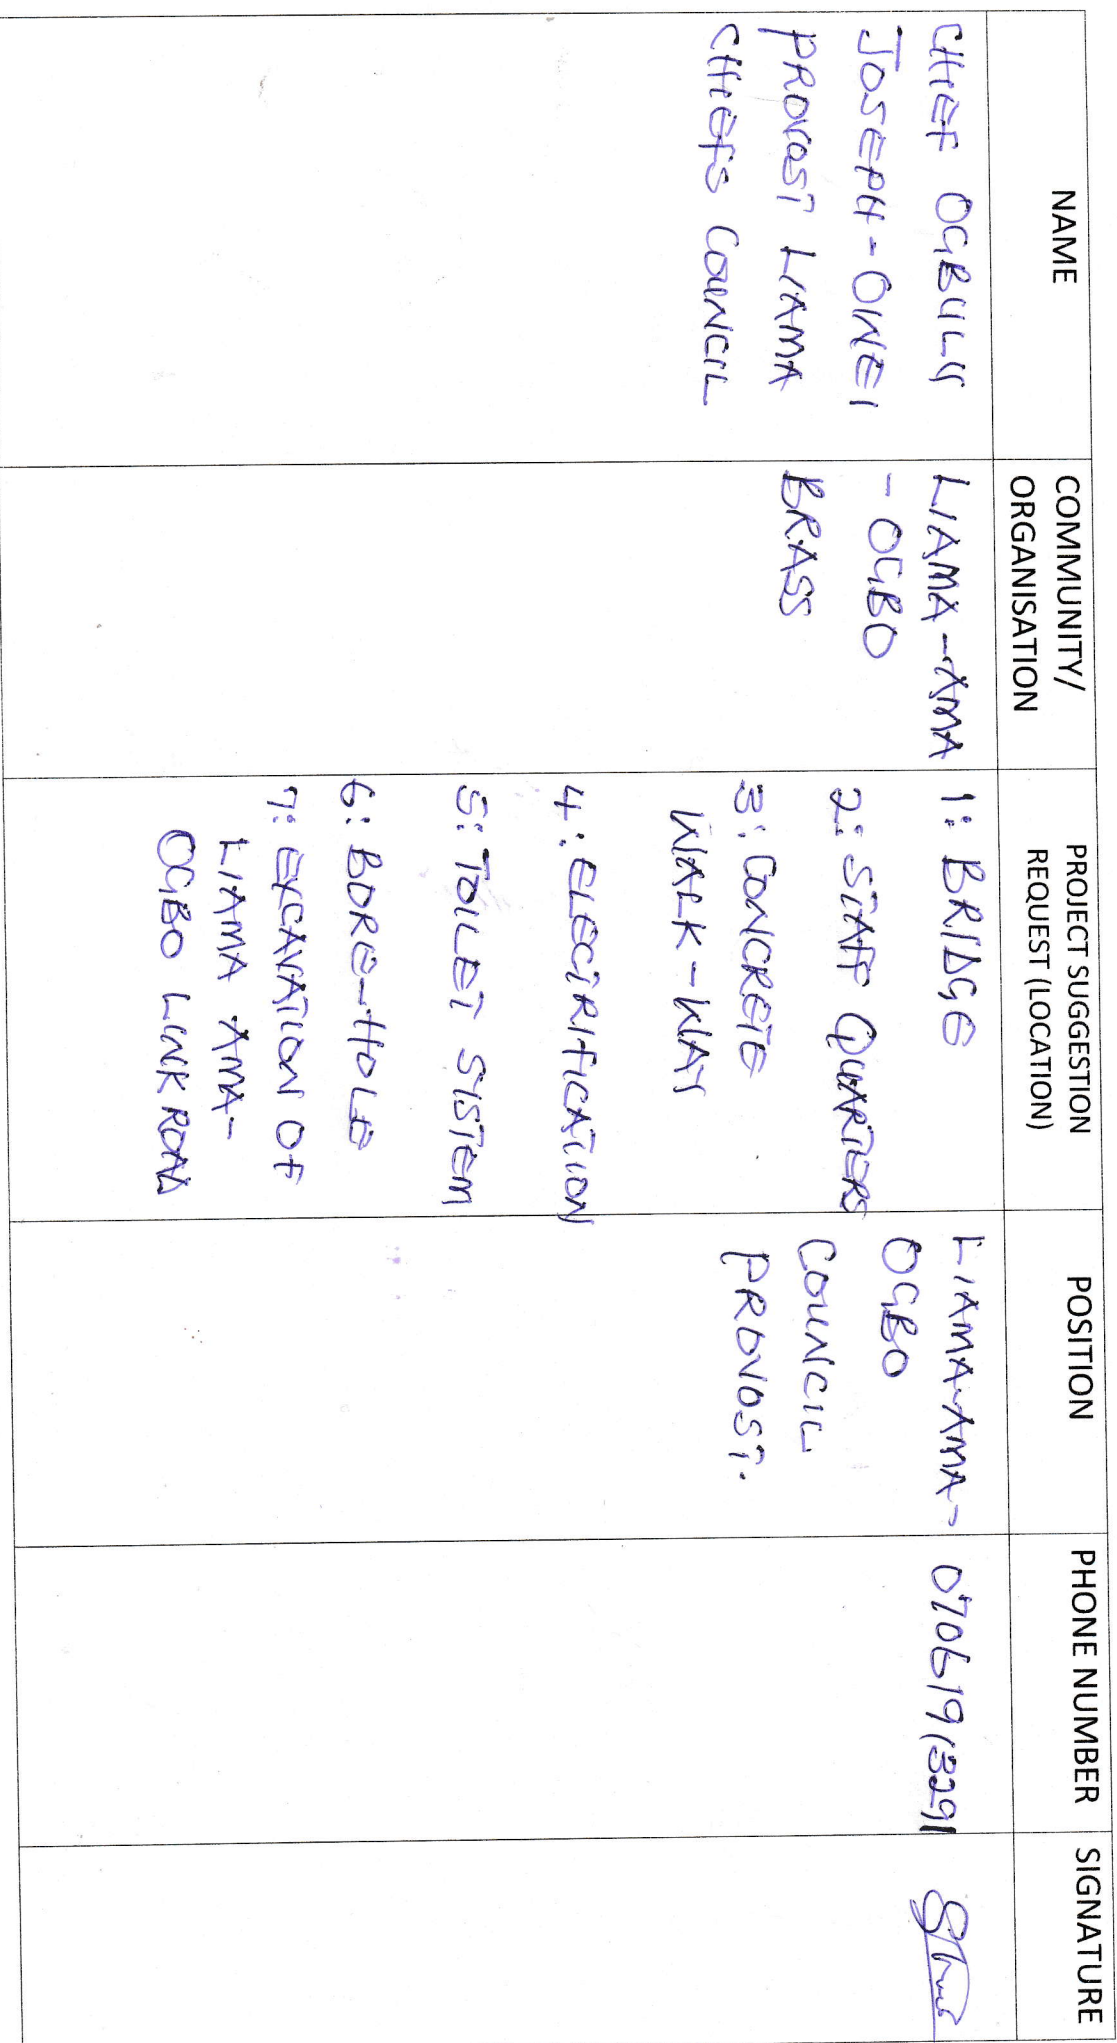 NAME
COMMUNITY/
ORGANISATION
PROJECT SUGGESTION
REQUEST (LOCATION)
POSITION
PHONE NUMBER
SIGNATURE
CHIEF OGBULU
JOSEPH-OWEI
PROVOST LIAMA
CHIEFS COUNCIL
LIAMA-AMA
- OGBO
BRASS
1: BRIDGE
2: STAFF QUARTERS
3: CONCRETE
WALK-WAY
4: ELECTRIFICATION
5: TOILET SYSTEM
6: BORE-HOLE
7: EXCAVATION OF
LIAMA AMA-
OGBO LINK ROAD
LIAMA-AMA-
OGBO
COUNCIL
PROVOST.
07061913291